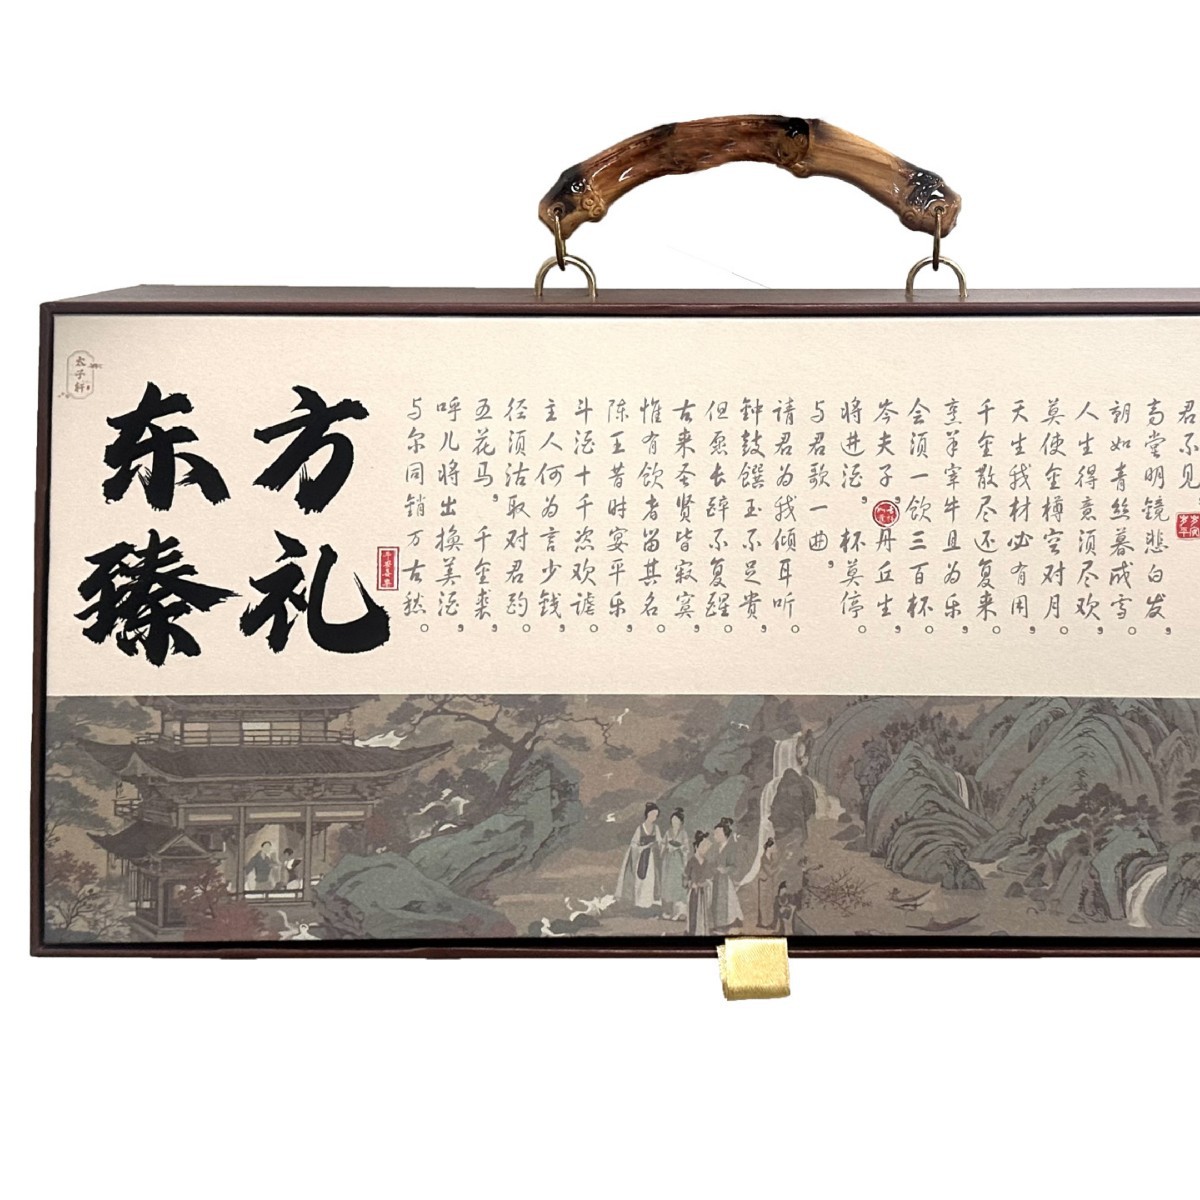 太子轩
东方
臻礼
君不见
高堂明镜悲白发，
朝如青丝暮成雪。
人生得意须尽欢，
莫使金樽空对月。
天生我材必有用，
千金散尽还复来。
烹羊宰牛且为乐，
会须一饮三百杯。
岑夫子，丹丘生，
将进酒，杯莫停。
与君歌一曲，
请君为我倾耳听。
钟鼓馔玉不足贵，
但愿长醉不复醒。
古来圣贤皆寂寞，
惟有饮者留其名。
陈王昔时宴平乐，
斗酒十千恣欢谑。
主人何为言少钱，
径须沽取对君酌。
五花马，千金裘，
呼儿将出换美酒，
与尔同销万古愁。